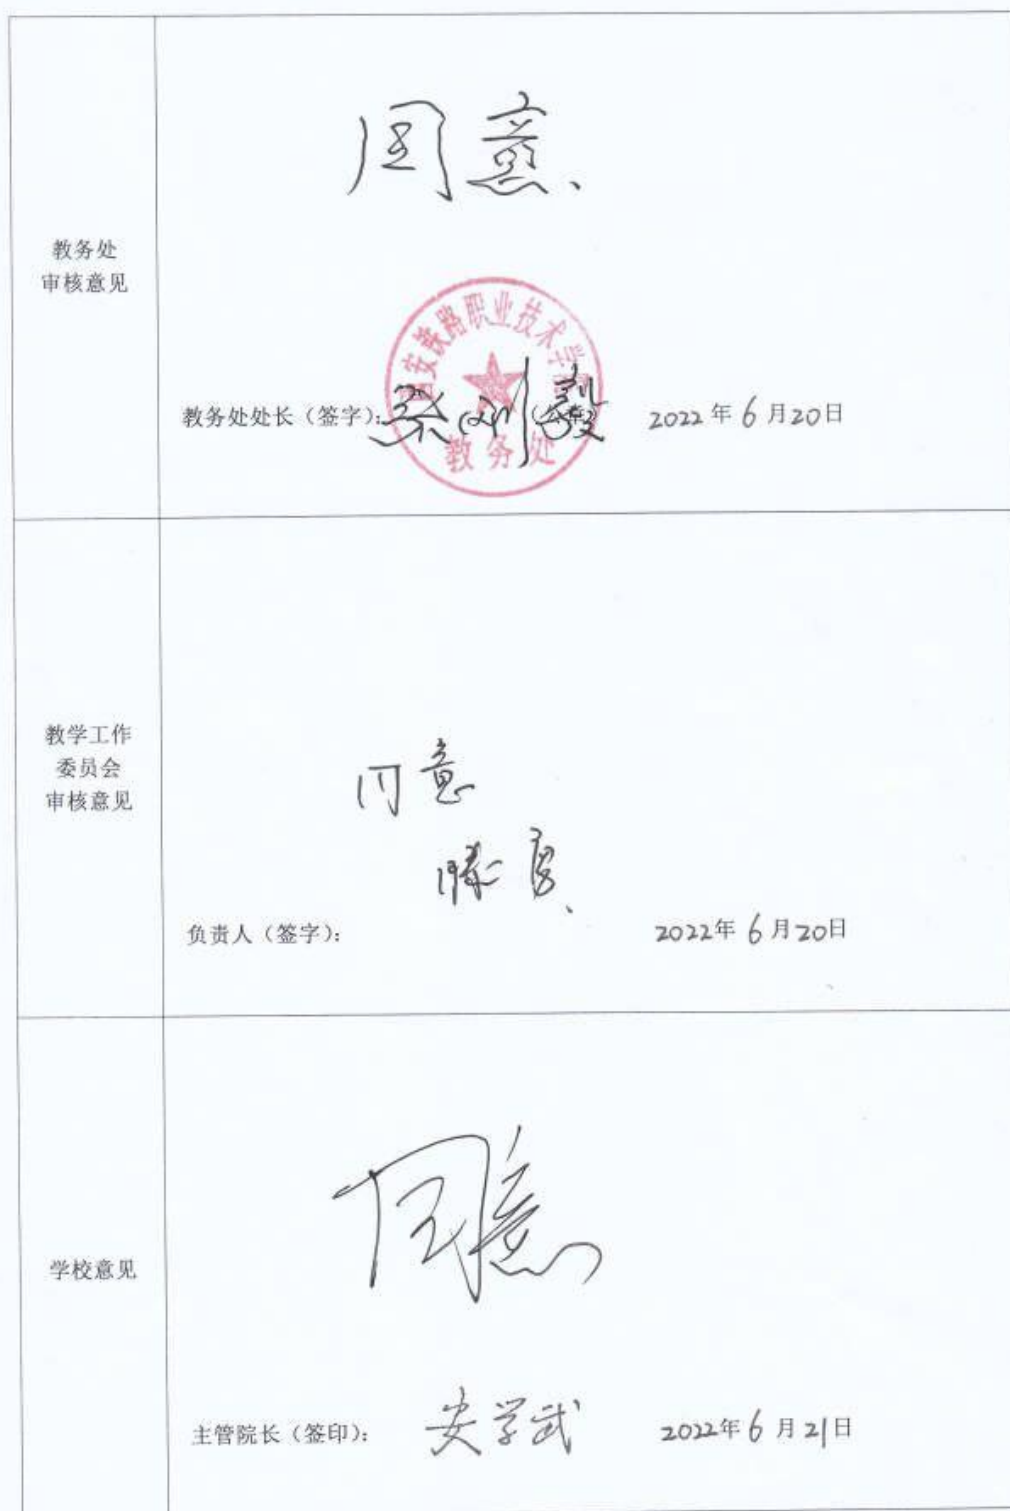 教务处
审核意见
同意
西安铁路职业技术学院
教务处
教务处处长（签字）： （公章） 2022年6月20日
教学工作
委员会
审核意见
同意
滕勇
负责人（签字）： 2022年6月20日
学校意见
同意
主管院长（签印）： 安学武 2022年6月21日